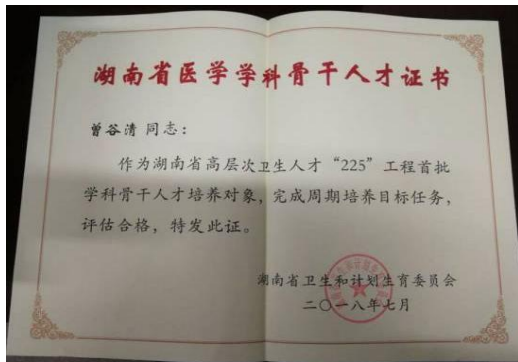 湖南省医学学科骨干人才证书
曾谷清 同志：
作为湖南省高层次卫生人才“225”工程首批
学科骨干人才培养对象，完成周期培养目标任务，
评估合格，特发此证。
湖南省卫生和计划生育委员会
二〇一八年七月